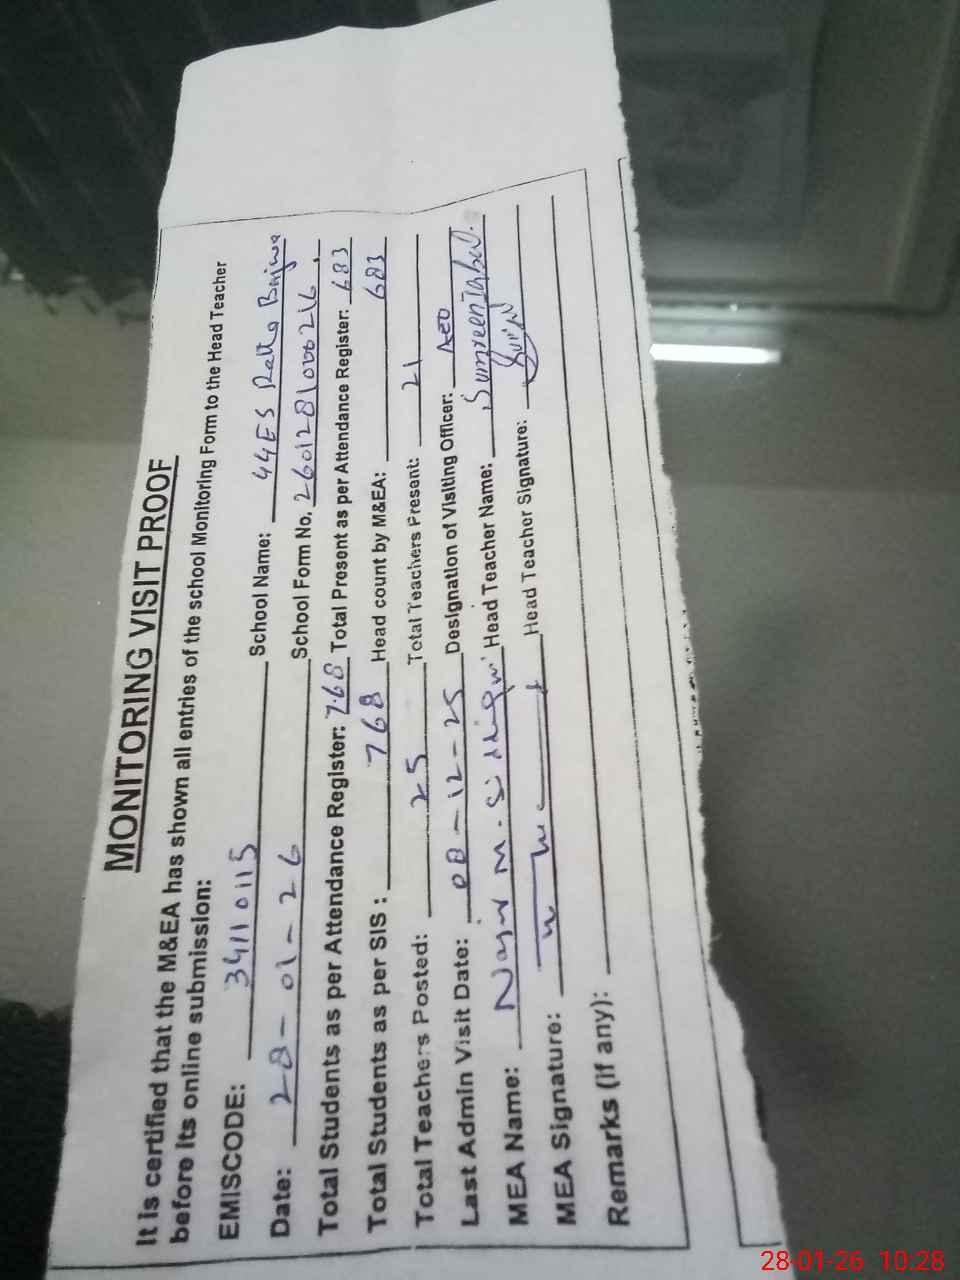 MONITORING VISIT PROOF
It is certified that the M&EA has shown all entries of the school Monitoring Form to the Head Teacher
before its online submission:
EMISCODE: 34110115 School Name: 44ES Ratta Bajwa
Date: 28-01-26 School Form No. 2601281000216
Total Students as per Attendance Register: 768 Total Present as per Attendance Register: 683
Total Students as per SIS: 768 Head count by M&EA: 683
Total Teachers Posted: 25 Total Teachers Present: 21
Last Admin Visit Date: 08-12-25 Designation of Visiting Officer: AEO
MEA Name: M. Siddiqui Head Teacher Name: Sumreen Iqbal.
MEA Signature: Head Teacher Signature:
Remarks (if any):
28-01-26 10:28